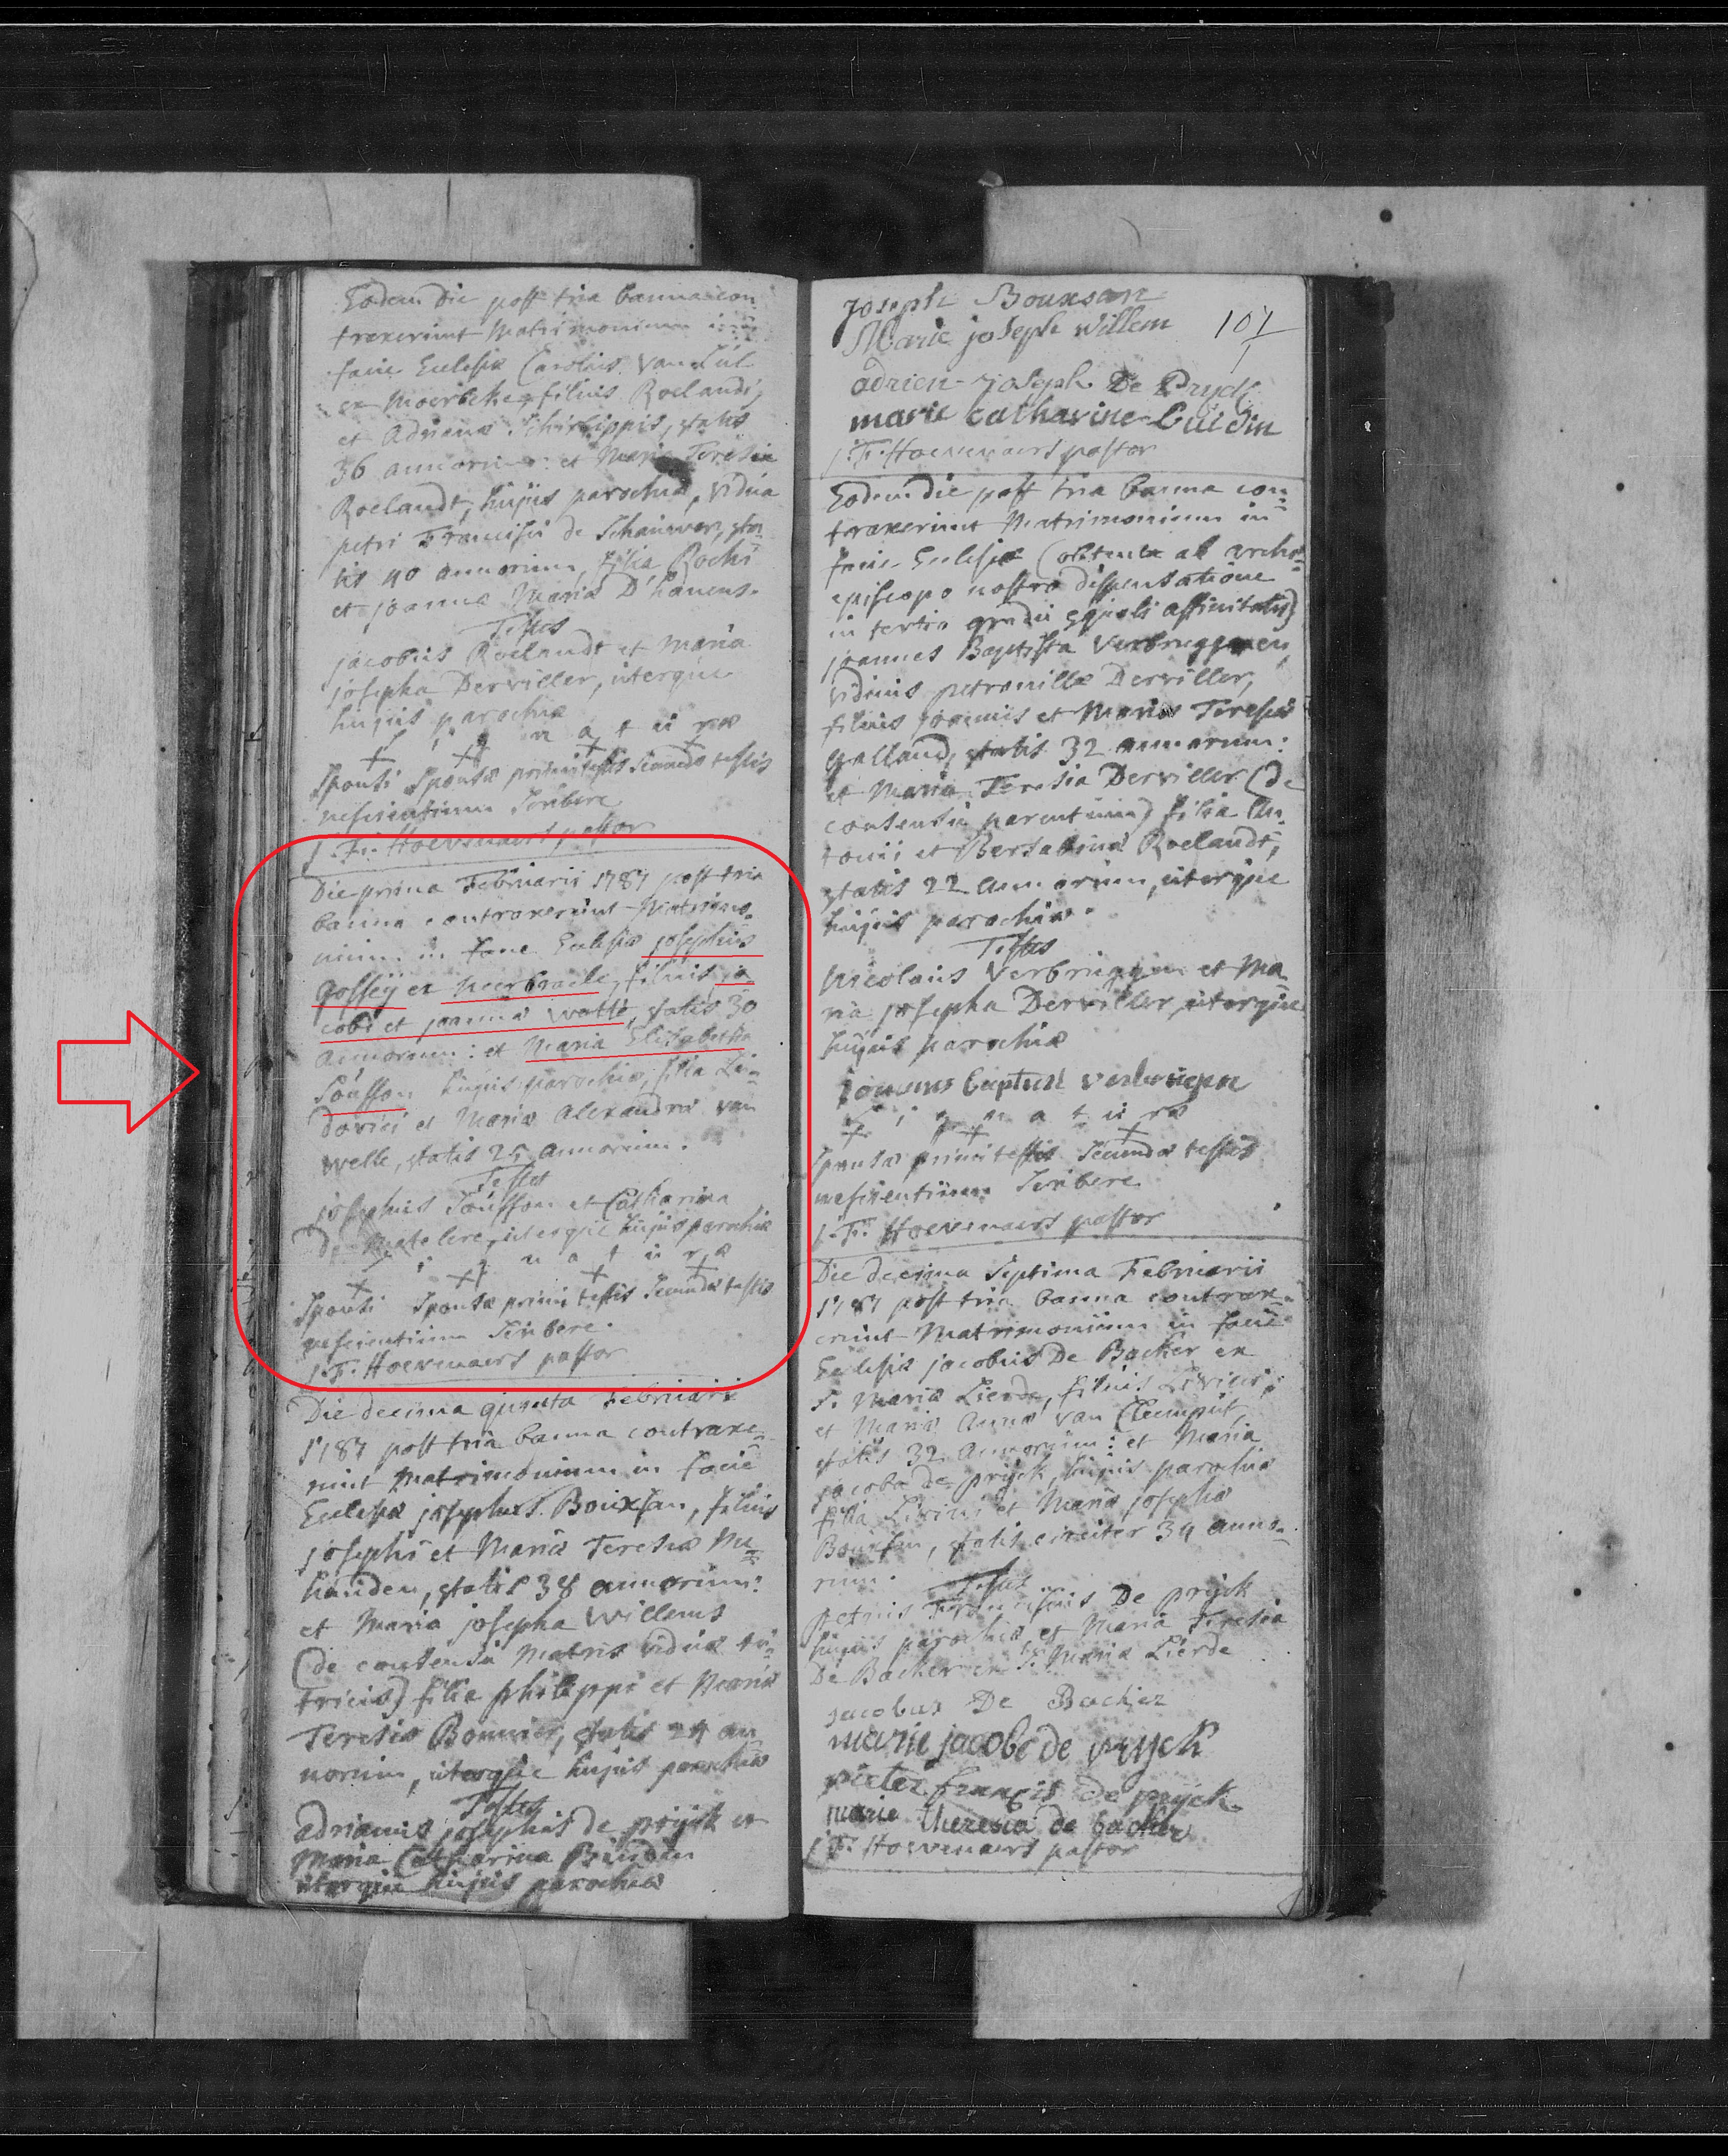 Eodem die post tria banna con
traxerunt Matrimonium in
facie Eclesiæ Carolus van
ex Moerbeke, filius Roelandi,
et Adrianæ Schirlippis, ætatis
36 annorum: et Maria Teresia
Roelandt, hujus parochiæ, vidua
petri Francisci de Schauwer, æta=
tis 40 annorum, filia Rochi
et joannæ Mariæ D'hauens.
Testes
jacobus Roelandt et Maria
josepha Derviller, uterque
hujus parochiæ
S i g n a t u ræ
+ + + +
Sponsi Sponsæ primi testis secundæ testis
nescientium scribere
j. F. Hoevenaers pastor
Die prima Februarii 1787 post tria
banna contraxerunt Matrimo=
nium in facie Eclesiæ josephus
gossey ex neerbraele, filius ja=
cobi et joannæ watté, ætatis 30
annorum: et Maria Elisabetha
Souffon hujus parochiæ, filia Lu=
dovici et Mariæ Alexandræ van
welle, ætatis 25 annorum.
Testes
josephus Souffon et Catharina
De uterque hujus parochiæ
S i g n a t u r æ
+ + + +
Sponsi Sponsæ primi testis secundæ testis
nescientium scribere.
j. F. Hoevenaers pastor
Die decima quinta Februarii
1787 post tria banna contraxe=
runt Matrimonium in facie
Eclesiæ josephus Bouxsan, filius
josephi et Mariæ Teresiæ Mu=
hauden, ætatis 38 annorum:
et Maria josepha Willems
(de consensu Matris viduæ tu=
tricis) filia philippi et Mariæ
Teresiæ Bonnier, ætatis 24 an
norum, uterque hujus parochiæ
Testes
adrianus josephus de prijck et
Maria Catharina
uterque hujus parochiæ
joseph Bouxsan
Marie joseph willem
107
adrien joseph De Pryck
marie catharine
j. F. Hoevenaers pastor
Eodem die post tria banna con=
traxerunt Matrimonium in
facie Eclesiæ (obtenta ab archi=
episcopo nostro dispensatione
in tertio gradu equali affinitatis)
joannes Baptista Verbruggen,
viduus petronillæ Derviller,
filius joannis et Mariæ Teresiæ
galland, ætatis 32 annorum:
et Maria Teresia Derviller (de
consensu parentum) filia An=
tonii et Bersabinæ Roelandt,
ætatis 22 annorum, uterque
hujus parochiæ.
Testes
Nicolaus Verbruggen et Ma=
ria josepha Derviller, uterque
hujus parochiæ
joannes baptist verbrugen
S i g n a t u ræ
+ + +
Sponsæ primi testis secundæ testis
nescientium scribere
j. F. Hoevenaers pastor
Die decima septima Februarii
1787 post tria banna contrax=
erunt Matrimonium in facie
Eclesiæ jacobus De Backer ex
S. Maria Lierde, filius Livini,
et Mariæ Annæ van Cleemput,
ætatis 32 annorum: et Maria
jacoba de prijck, hujus parochiæ
filia Livini et Mariæ josephæ
Bouxsan, ætatis circiter 34 anno=
rum.
Testes
petrus Franciscus De prijck
hujus parochiæ et Maria Teresia
De Backer ex S. Maria Lierde
jacobus De Backer
marie jacobe de prijck
pieter francis de prijck
marie theresia de backer
j. F. Hoevenaers pastor